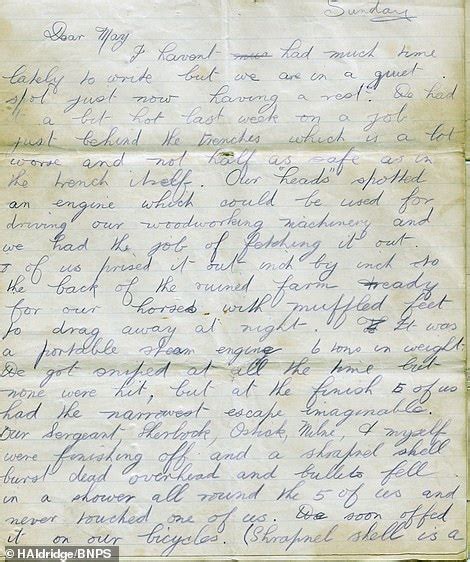 Sunday
Dear May
I havent had much time
lately to write but we are in a quiet
spot just now having a rest". We had
a bit hot last week on a job
just behind the trenches which is a lot
worse and not half as safe as in
the trench itself. Our "heads" spotted
an engine which could be used for
driving our woodworking machinery and
we had the job of fetching it out.
7 of us prised it out inch by inch to
the back of the ruined farm ready
for our horses with muffled feet
to drag away at night. It was
a portable steam engine 6 tons in weight.
We got sniped at all the time but
none were hit, but at the finish 5 of us
had the narrowest escape imaginable.
Our Sergeant, Sherlock, Ostick, Milne, & myself
were finishing off and a shrapnel shell
burst dead overhead and bullets fell
in a shower all round the 5 of us and
never touched one of us. We soon offed
it on our bicycles. (Shrapnel shell is a
© HAldridge/BNPS